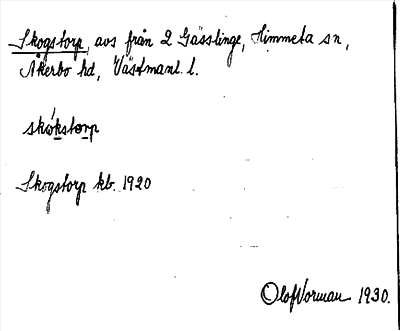 Skogstorp, avs från 2 Gässlinge, Himmeta sn,
Åkerbo hd, Västmanl. l.
skókstorp
Skogstorp kb. 1920
Olof Norman 1930.